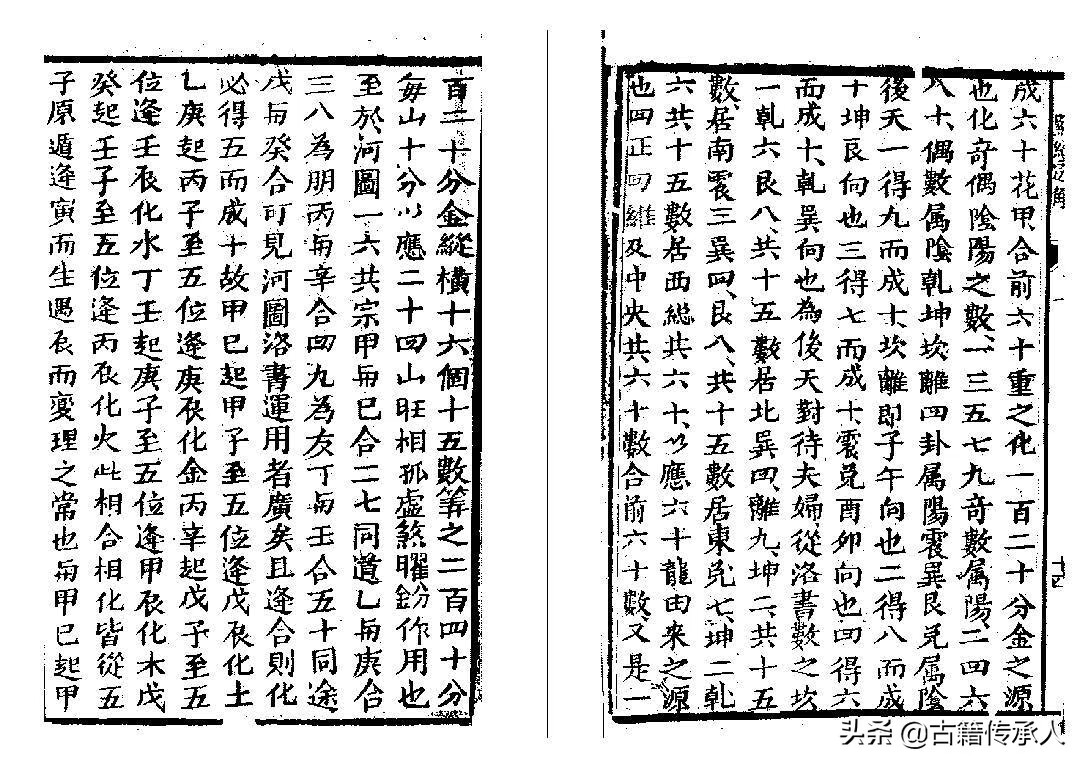 成六十花甲合前六十重之化一百二十分金之源
也化奇偶陰陽之數一三五七九奇數属陽二四六
八十偶數属陰乾坤坎離四卦属陽震巽艮兌属陰
後天一得九而成十坎離即子午向也二得八而成
十坤艮向也三得七而成十震兌酉卯向也四得六
而成十乾巽向也為後天對待夫婦從洛書數之坎
一乾六艮八共十五數居北巽四離九坤二共十五
數居南震三巽四艮八共十五數居東兌七坤二乾
六共十五數居西総共六十以應六十龍由來之源
也四正四維及中央共六十數合前六十數又是一
百二十分金縱横十六個十五數筭之二百四十分
每山十分以應二十四山旺相孤虛煞曜鈖作用也
至於河圖一六共宗甲與巳合二七同道乙與庚合
三八為朋丙與辛合四九為友丁與壬合五十同途
戊與癸合可見河圖洛書運用者廣矣且逢合則化
必得五而成十故甲巳起甲子至五位逢戊辰化土
乙庚起丙子至五位逢庚辰化金丙辛起戊子至五
位逢壬辰化水丁壬起庚子至五位逢甲辰化木戊
癸起壬子至五位逢丙辰化火此相合相化皆從五
子原遁逢寅而生遇辰而變理之常也與甲巳起甲
頭条 @古籍传承人